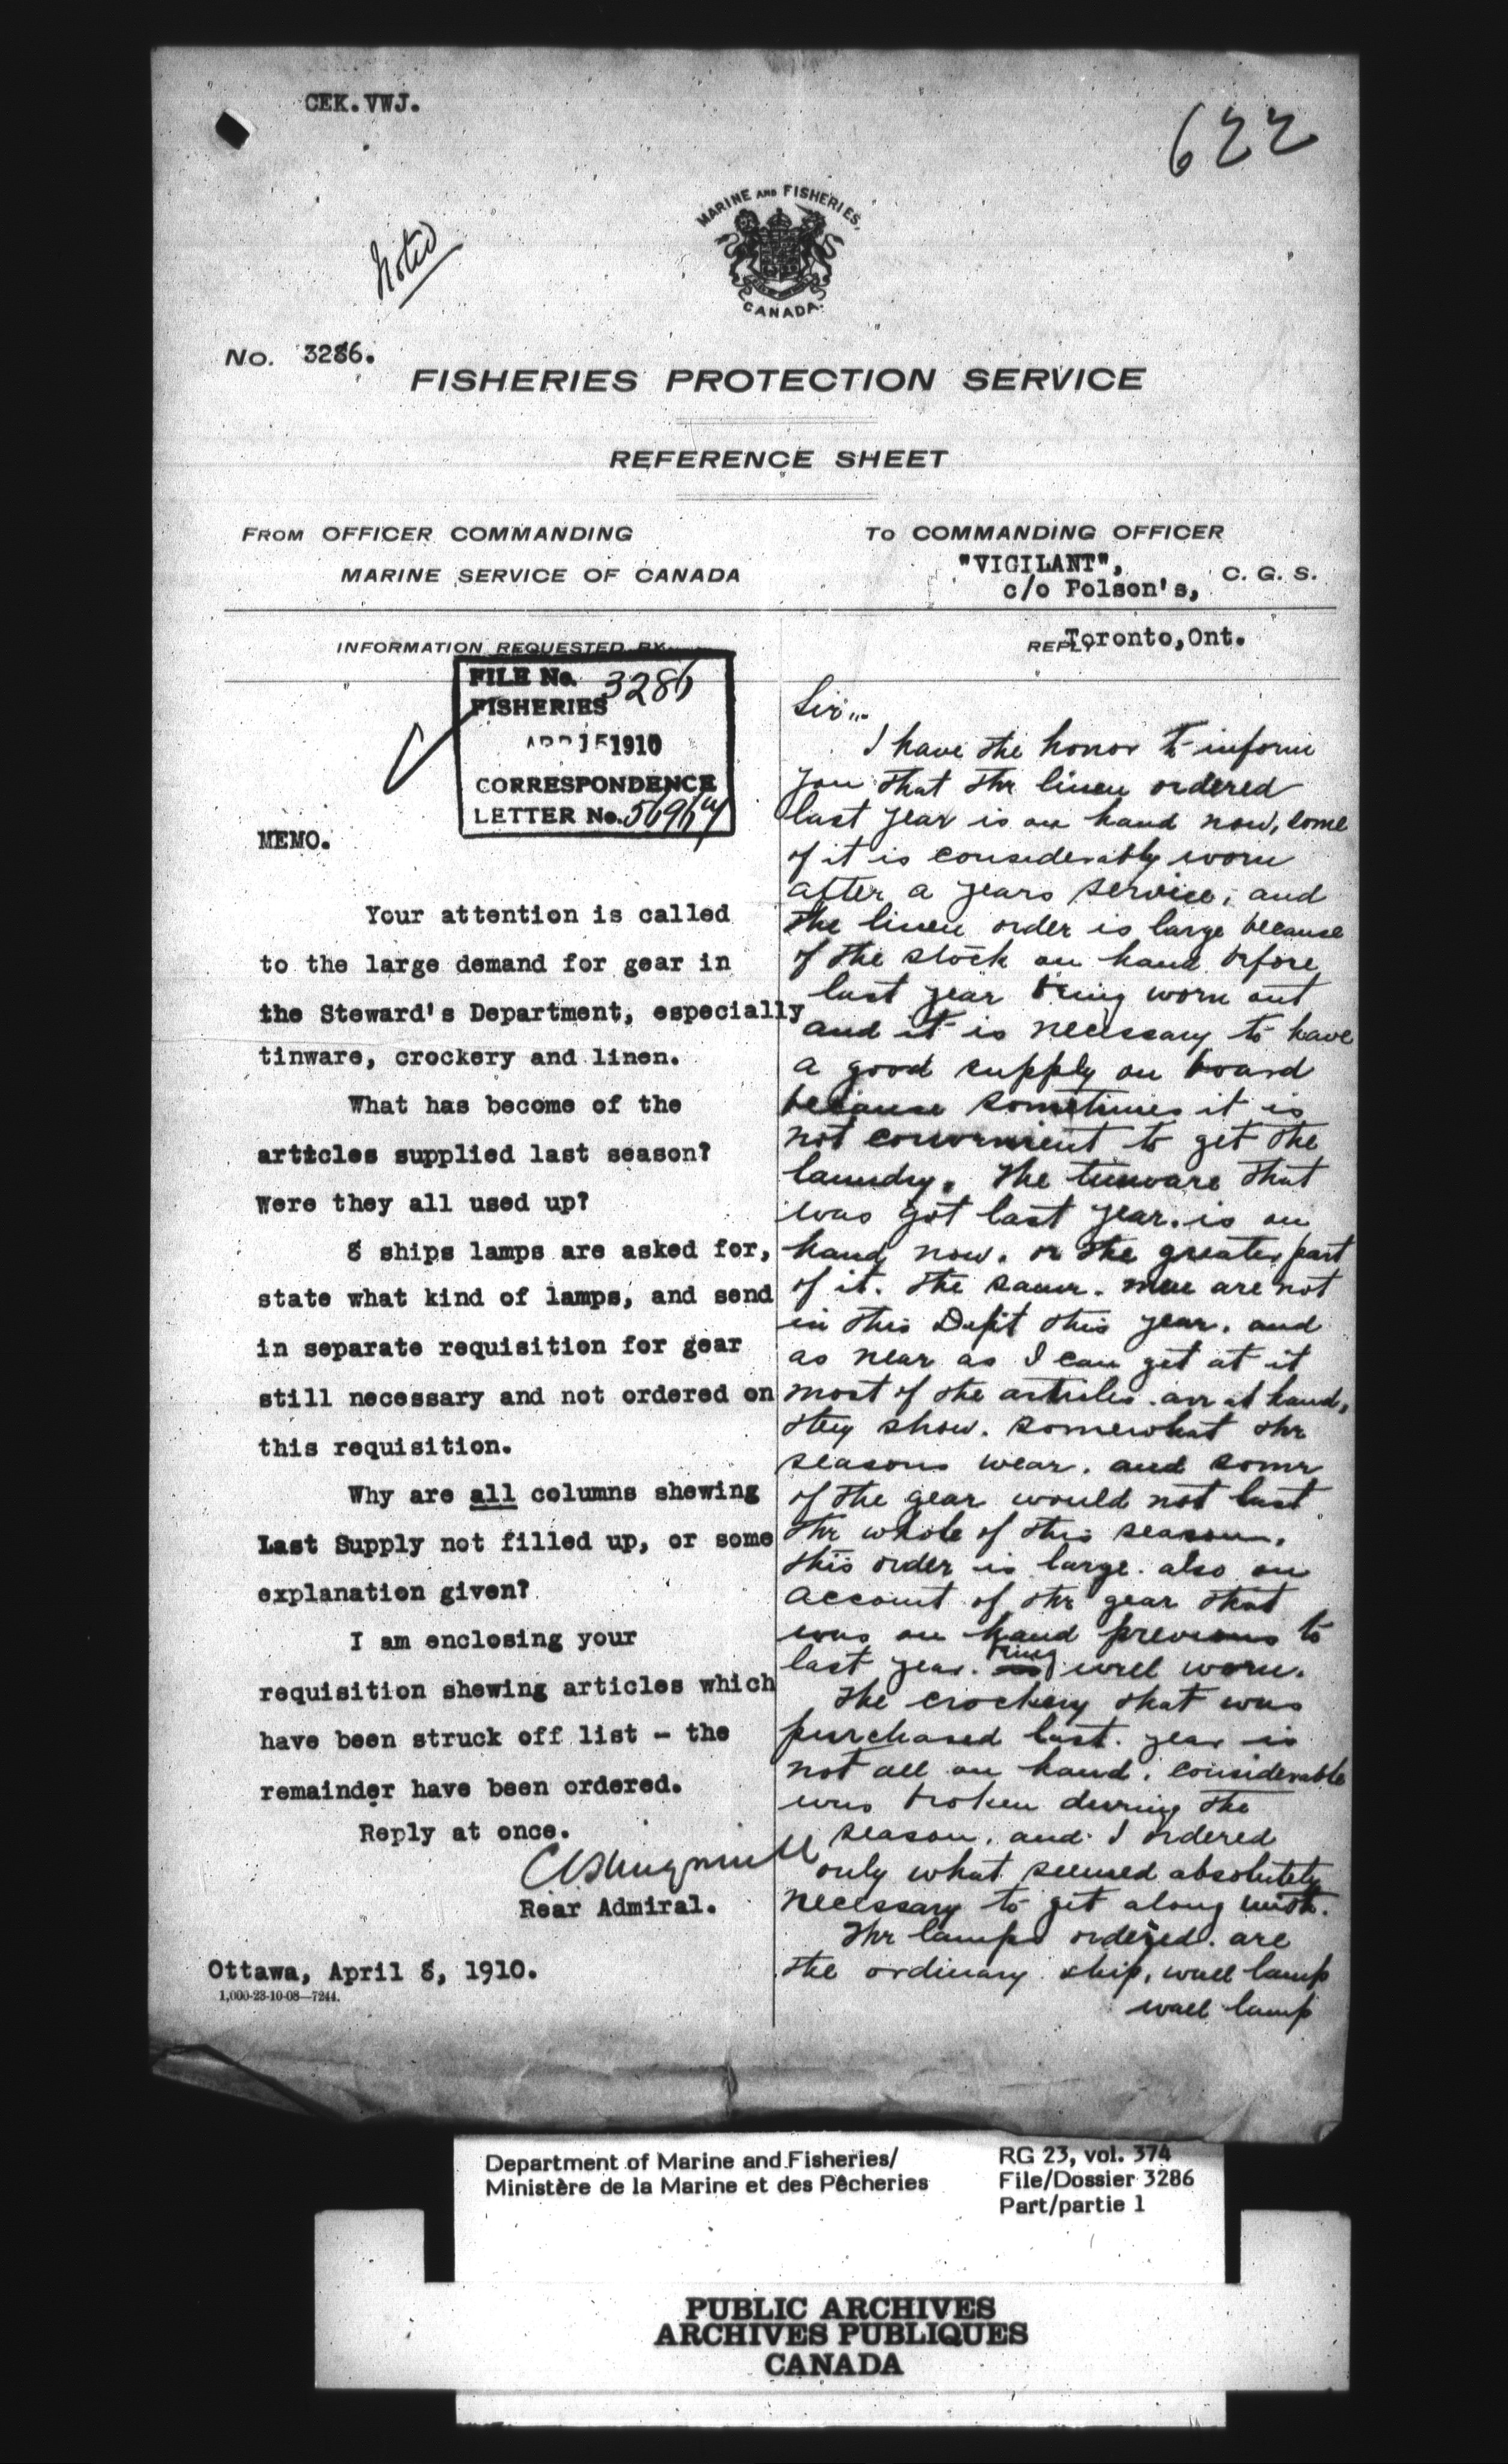 CEK.VWJ.
622
MARINE AND FISHERIES,
CANADA.
Noted
No. 3286.
FISHERIES PROTECTION SERVICE
REFERENCE SHEET
FROM OFFICER COMMANDING
MARINE SERVICE OF CANADA
TO COMMANDING OFFICER
"VIGILANT",
C. G. S.
c/o Polson's,
Toronto, Ont.
INFORMATION REQUESTED BY
REPLY
FILE No. 3286
FISHERIES
APR 15 1910
CORRESPONDENCE
LETTER No.
MEMO.
Your attention is called
to the large demand for gear in
the Steward's Department, especially
tinware, crockery and linen.
What has become of the
articles supplied last season?
Were they all used up?
8 ships lamps are asked for,
state what kind of lamps, and send
in separate requisition for gear
still necessary and not ordered on
this requisition.
Why are all columns shewing
Last Supply not filled up, or some
explanation given?
I am enclosing your
requisition shewing articles which
have been struck off list - the
remainder have been ordered.
Reply at once.
Rear Admiral.
Ottawa, April 8, 1910.
1,000-23-10-08—7244.
Sir,
I have the honor to inform
you that the linen ordered
last year is on hand now, some
of it is considerably worn
after a years service, and
the linen order is large because
of the stock on hand before
last year being worn out
and it is necessary to have
a good supply on board
because sometimes it is
not convenient to get the
laundry. The tinware that
was got last year is on
hand now. or the greater part
of it. The same men are not
in this Dept this year. and
as near as I can get at it
most of the articles are at hand,
they show somewhat the
seasons wear. and some
of the gear would not last
the whole of this season.
this order is large also on
account of the gear that
was on hand previous to
last year being well worn.
The crockery that was
purchased last year is
not all on hand, considerable
was broken during the
season, and I ordered
only what seemed absolutely
necessary to get along with.
The lamps ordered are
the ordinary ship, wall lamp
wall lamp
Department of Marine and Fisheries/
Ministère de la Marine et des Pêcheries
RG 23, vol. 374
File/Dossier 3286
Part/partie 1
PUBLIC ARCHIVES
ARCHIVES PUBLIQUES
CANADA